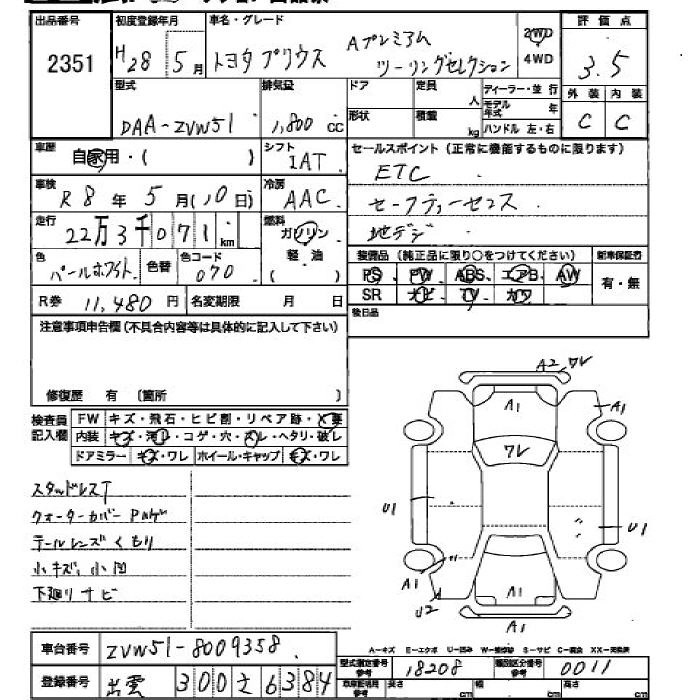 出品番号 初度登録年月 車名・グレード 2WD 4WD 評価点
2351 H28 5月 トヨタプリウス Aプレミアム ツーリングセレクション 3.5
型式 排気量 ドア 定員 人 ディーラー・並行 外装 内装
DAA-ZVW51 1,800 CC 形状 積載 kg モデル年式 年 ハンドル 左・右 C C
車歴 自家用・( ) シフト IAT セールスポイント (正常に機能するものに限ります)
ETC
車検 R8年5月(10日) 冷房 AAC セーフティーセンス
走行 22万3千071 km 燃料 ガソリン 軽油 地デジ
色 パールホワイト 色替 色コード 070 装備品 (純正品に限り○をつけてください) 新車保証書
PS PW ABS エアB AW 有・無
R券 11,480円 名変期限 月 日 SR ナビ TV カワ
後日品
注意事項申告欄(不具合内容等は具体的に記入して下さい)
修復歴 有 (箇所 )
検査員記入欄 FW キズ・飛石・ヒビ割・リペア跡・
内装 キズ・汚レ・コゲ・穴・スレ・ヘタリ・破レ
ドアミラー キズ・ワレ ホイール・キャップ キズ・ワレ
A2 ワレ
A1 A1
ワレ
U1 U1
A1 U2 A1
A1
スタッドレスT
クォーターカバー
テールレンズくもり
小キズ、小凹
下廻りサビ
A-キズ E-エクボ U-凹み S-サビ
車台番号 ZVW51-8009358
型式指定番号 参考 18208 類別区分番号 参考 0011
登録番号 出雲 300 さ 6384
参考 長さ cm 幅 cm 高さ cm